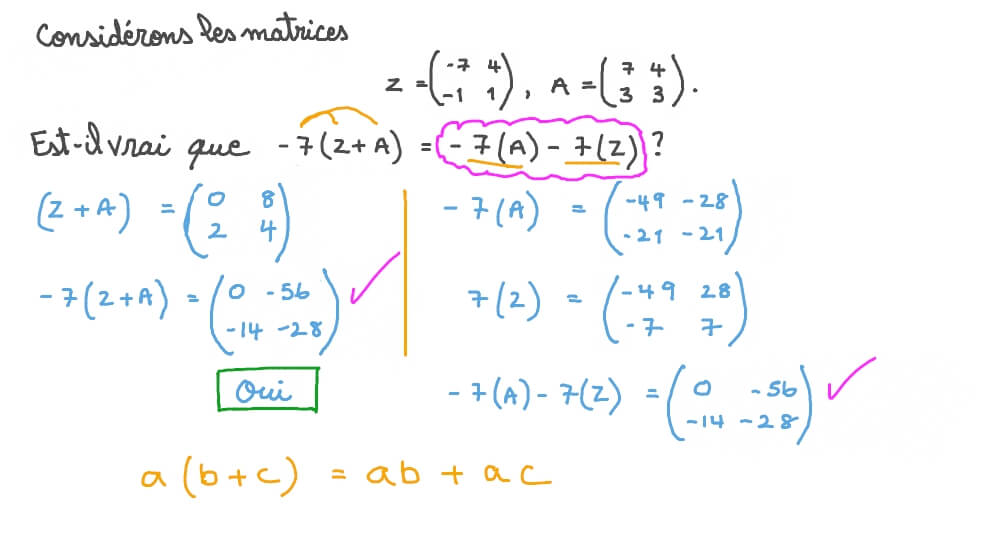 Considérons les matrices
Z = (-7 4 -1 1), A = (7 4 3 3).
Est-il vrai que -7(Z+A) = -7(A) - 7(Z)?
(Z+A) = (0 8 2 4)
-7(Z+A) = (0 -56 -14 -28) ✓
Oui
-7(A) = (-49 -28 -21 -21)
7(Z) = (-49 28 -7 7)
-7(A) - 7(Z) = (0 -56 -14 -28) ✓
a(b+c) = ab + ac